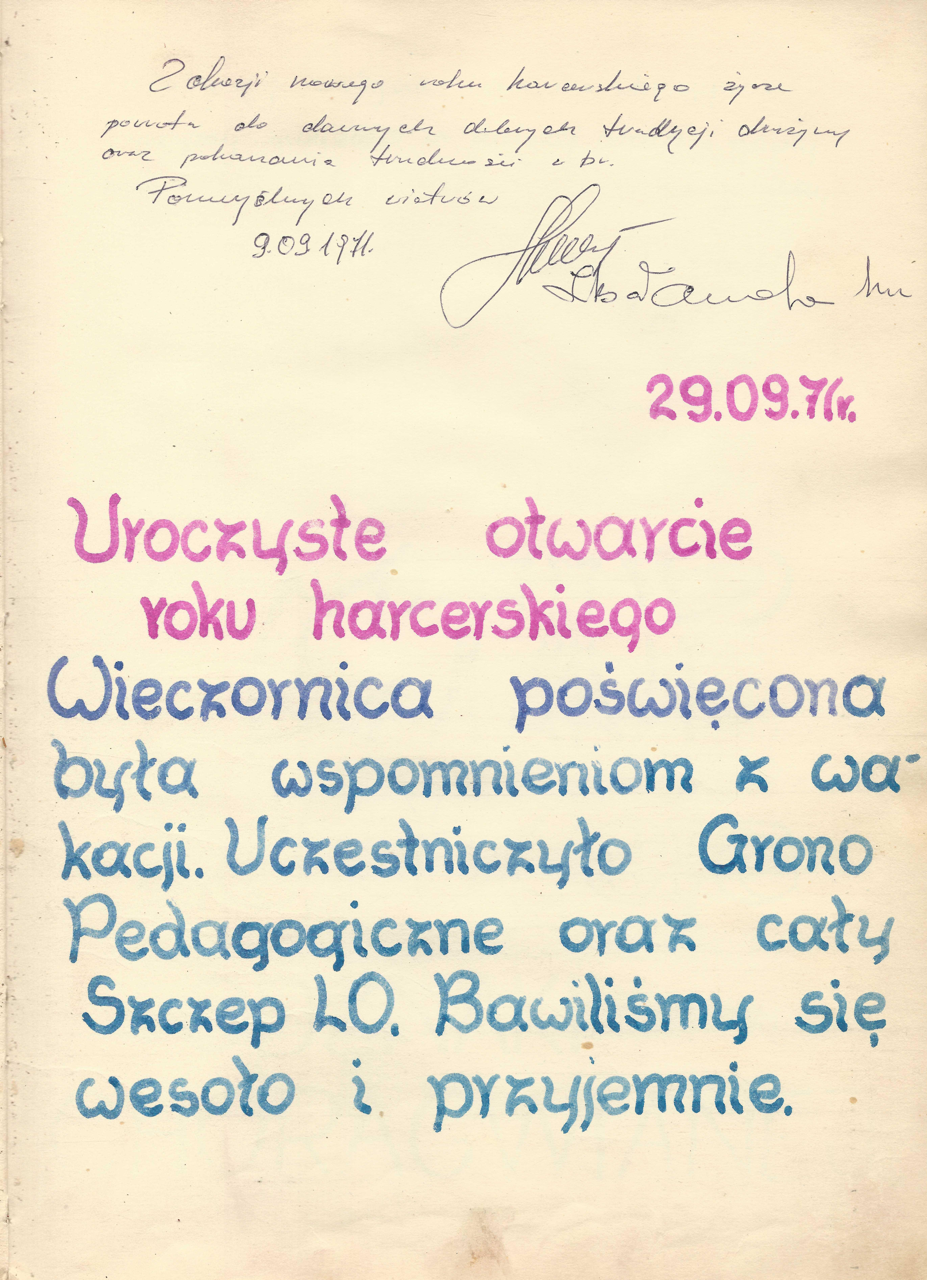 Z okazji nowego roku harcerskiego życzę
powrotu do dawnych dobrych tradycji drużyny
oraz pokonania trudności w br.
Pomyślnych wiatrów
9.09.1971.
29.09.71r.
Uroczyste otwarcie
roku harcerskiego
Wieczornica poświęcona
była wspomnieniom z wa-
kacji. Uczestniczyło Grono
Pedagogiczne oraz cały
Szczep LO. Bawiliśmy się
wesoło i przyjemnie.